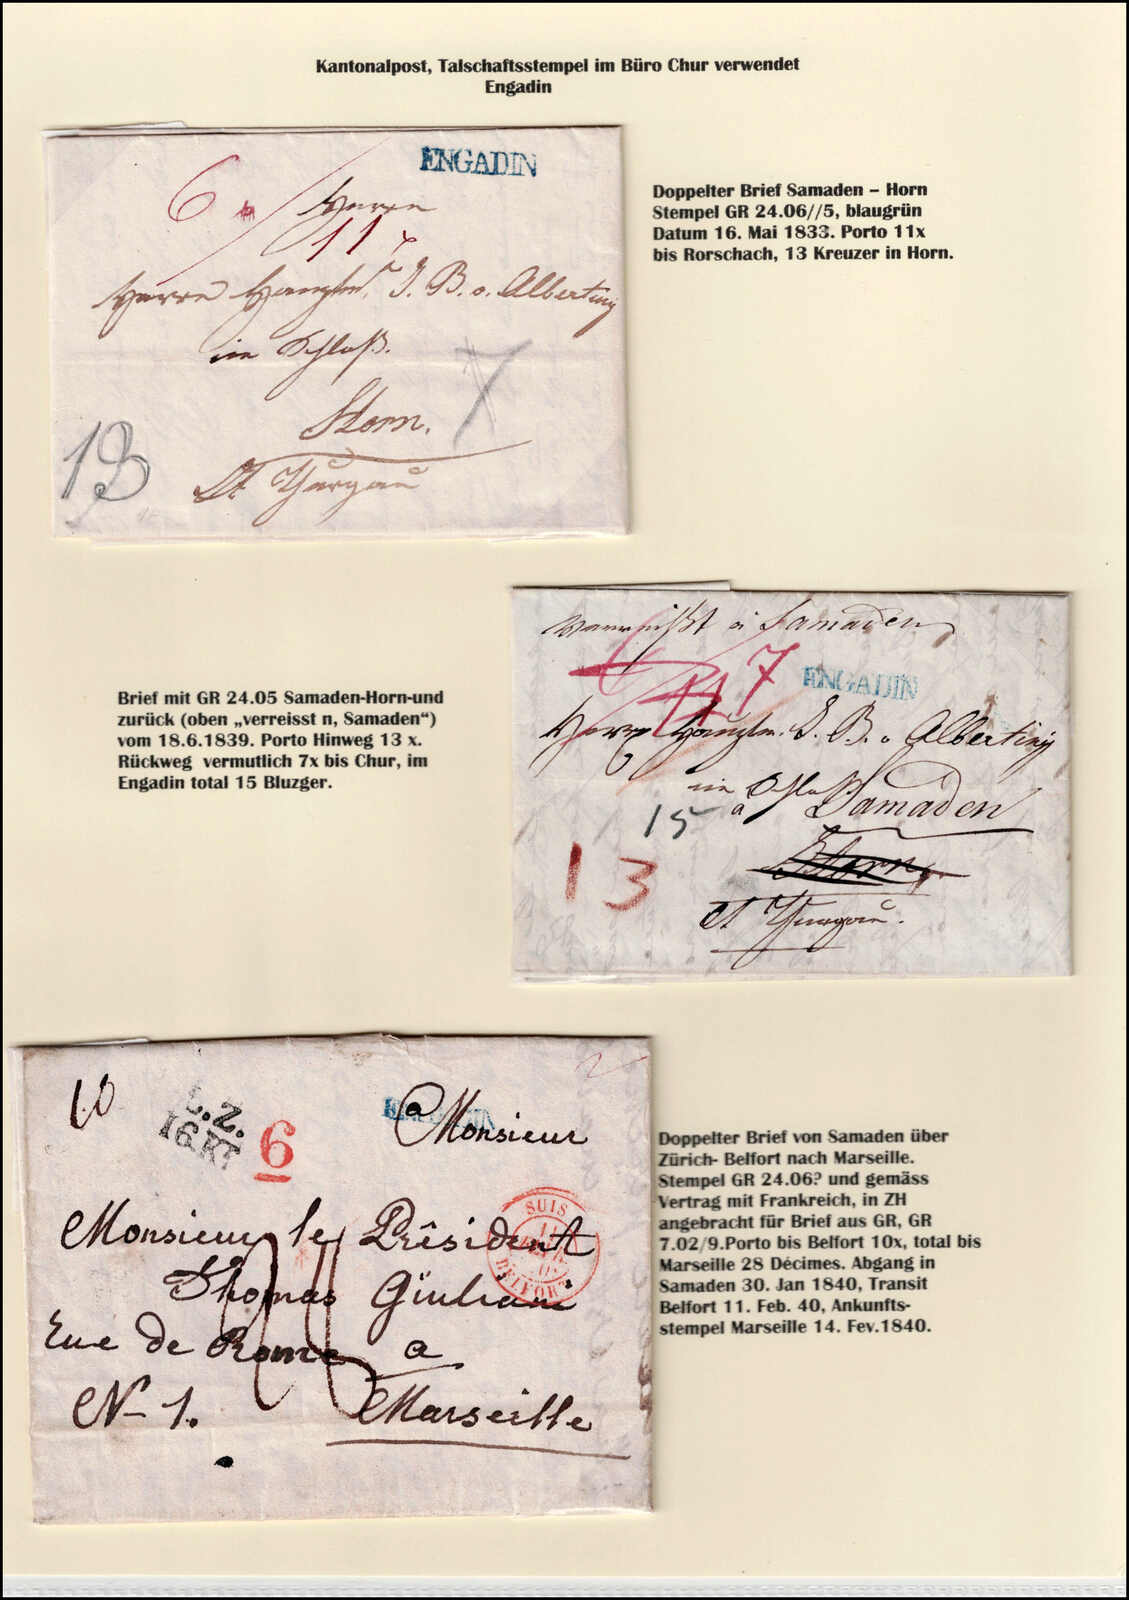 Kantonalpost, Talschaftsstempel im Büro Chur verwendet
Engadin
ENGADIN
6
Herrn
11
Doppelter Brief Samaden – Horn
Stempel GR 24.06//5, blaugrün
Datum 16. Mai 1833. Porto 11x
bis Rorschach, 13 Kreuzer in Horn.
Herrn J. B. v. Albertiny
im Schloß.
Horn.
13
Ct Thurgau
verreisst n Samaden
7
ENGADIN
Herrn J. B. v. Albertiny
im Schloß
a Samaden
15
Horn
13
Ct Thurgau.
Brief mit GR 24.05 Samaden-Horn-und
zurück (oben „verreisst n, Samaden“)
vom 18.6.1839. Porto Hinweg 13 x.
Rückweg vermutlich 7x bis Chur, im
Engadin total 15 Bluzger.
10
L.Z.
16 KR
6
ENGADIN
a Monsieur
SUIS
11
BELFORT
Monsieur le Président
Thomas Giuliani
Rue de Rome a
N- 1. Marseille
Doppelter Brief von Samaden über
Zürich- Belfort nach Marseille.
Stempel GR 24.06? und gemäss
Vertrag mit Frankreich, in ZH
angebracht für Brief aus GR, GR
7.02/9.Porto bis Belfort 10x, total bis
Marseille 28 Décimes. Abgang in
Samaden 30. Jan 1840, Transit
Belfort 11. Feb. 40, Ankunfts-
stempel Marseille 14. Fev.1840.